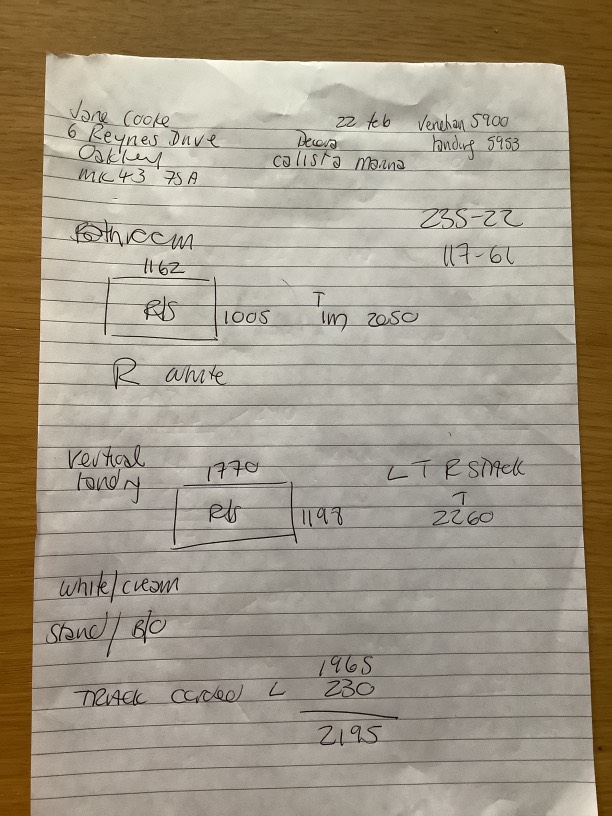 Jane Cooke
6 Reynes Drive
Oakley
MK43 7SA
22 feb
Decora
calista marina
Venetian 5900
landry 5953
235-22
117-61
Bathroom
1162
R/S
1005
T
1m 2050
R white
Vertical
landry
1770
R/S
1198
L T R STACK
T
2260
white/cream
Stand/ B/O
1965
TRACK corded L 230
2195